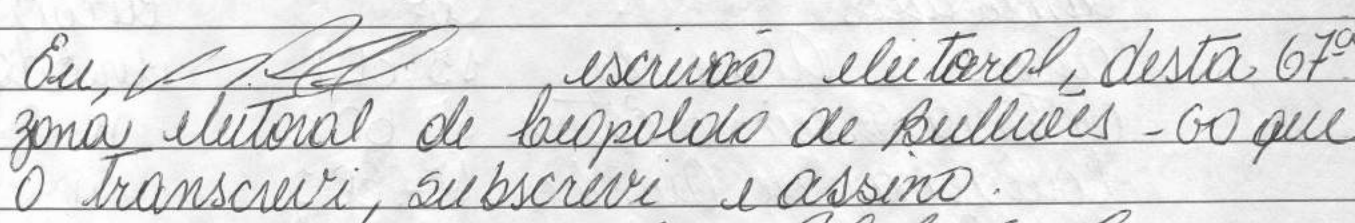 Eu, escrivão eleitoral, desta 67ª
zona eleitoral de Leopoldo de Bulhões - GO que
o transcrevi, subscrevi e assino.